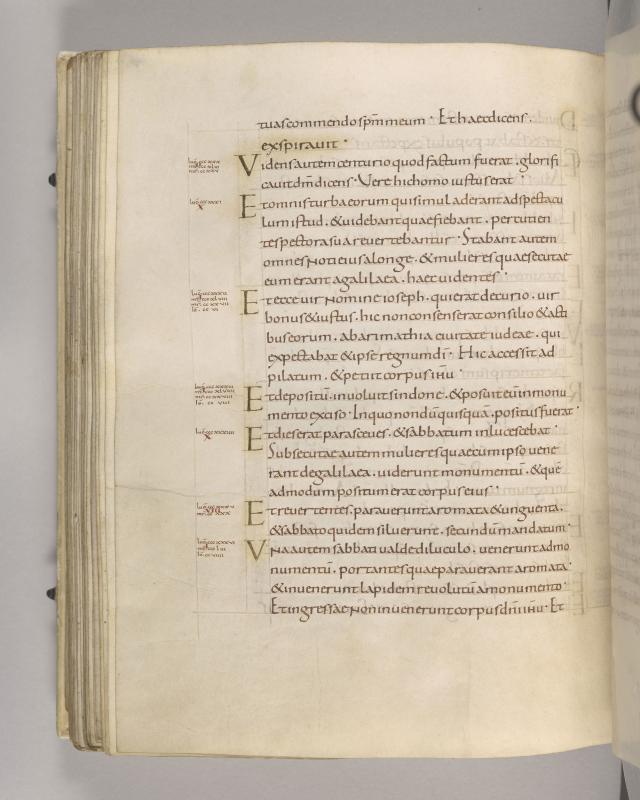 tuas commendo spm meum · Et haec dicens ,
exspirauit ·
Videns autem centurio quod factum fuerat . glorifi
cauit dm dicens · Vere hic homo iustus erat ·
Et omnis turba eorum qui simul aderant ad spectacu
lum istud . & uidebant quae fiebant . percutien
tes pectora sua reuertebantur · Stabant autem
omnes noti eius a longe . & mulieres quae secutae
eum erant a galilaea . haec uidentes ·
Et ecce uir nomine ioseph . qui erat decurio . uir
bonus & iustus . hic non consenserat consilio & acti
bus eorum . ab arimathia ciuitate iudeae . qui
expectabat & ipse regnum di · Hic accessit ad
pilatum . & petiit corpus ihu ·
Et depositu inuoluit sindone . & posuit eu in monu
mento exciso · In quo nondu quisqua positus fuerat ·
Et dies erat parasceues . & sabbatum inlucescebat ·
Subsecutae autem mulieres quae cum ipso uene
rant de galilaea . uiderunt monumentu . & que
admodum positum erat corpus eius ·
Et reuertentes . parauerunt aromata & unguenta .
& sabbato quidem siluerunt . secundu mandatum ·
Vna autem sabbati ualde diluculo . uenerunt ad mo
numentu . portantes quae parauerant aromata ·
& inuenerunt lapidem reuolutu a monumento ·
Et ingressae non inuenerunt corpus dni ihu · Et